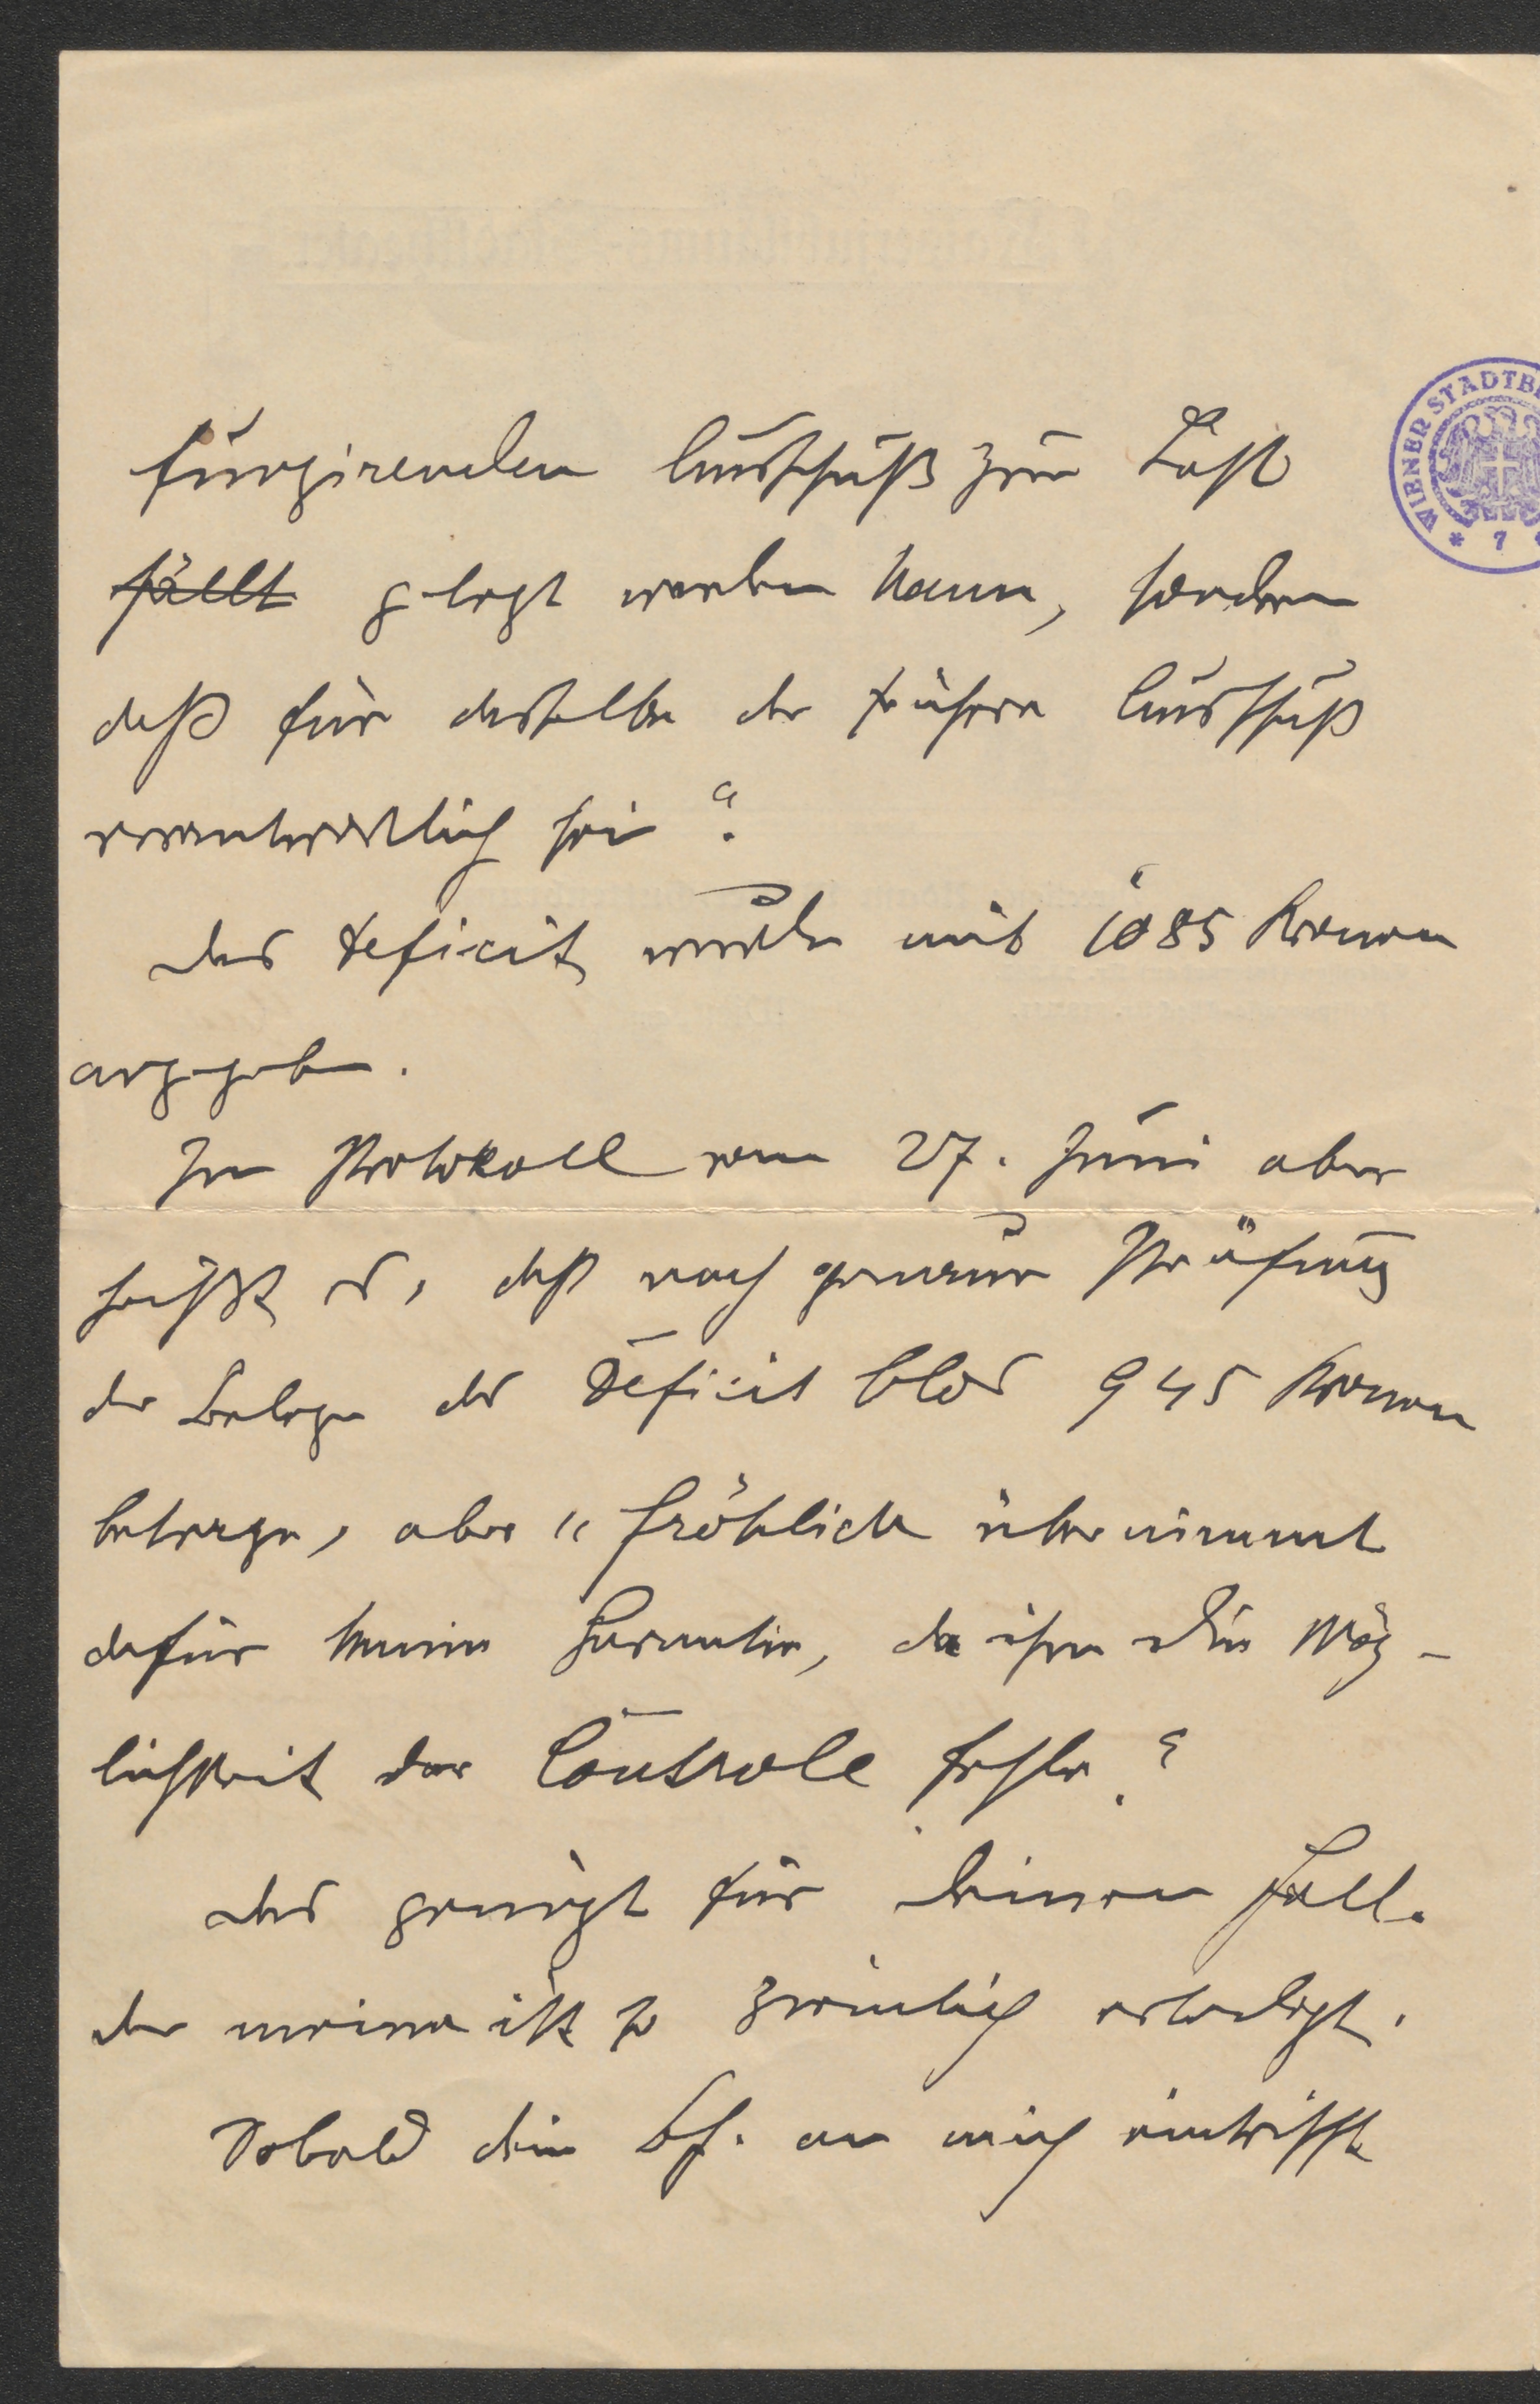 WIENER STADTB
* 7 *
fungirenden Ausschuß zur Last
fällt gelegt werden kann, sondern
daß für dasselbe der frühere Ausschuß
verantwortlich sei“.
Das Deficit wurde mit 1085 Kronen
angegeben.
Im Protokoll vom 27. Juni aber
heißt es, daß nach genauer Prüfung
der Belege das Deficit blos 945 Kronen
betrage, aber „Fröhlich übernimmt
dafür keine Garantie, da ihm die Mög-
lichkeit der Controle fehle.“
Das genügt für Deinen Fall.
Der meine ist so ziemlich erledigt.
Sobald dein Bf. an mich eintrifft